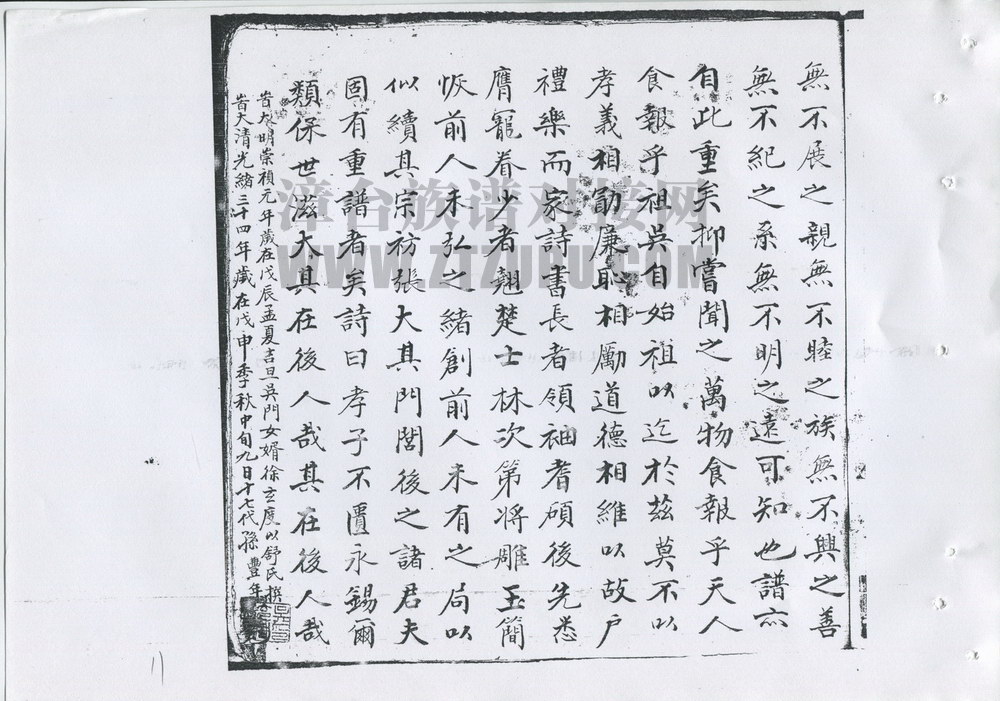 無不展之親無不睦之族無不興之善
無不紀之系無不明之遠可知也譜亦
自此重矣抑嘗聞之萬物食報乎天人
食報乎祖吳自始祖以迄於茲莫不以
孝義相勖廉恥相勵道德相維以故户
禮樂而家詩書長者領袖耆碩後先悉
膺寵眷少者翹楚士林次第將雕玉簡
恢前人未弘之緒創前人未有之局以
似續其宗祊張大其門閭後之諸君夫
固有重譜者矣詩曰孝子不匱永錫爾
類保世滋大其在後人哉其在後人哉
旹大明崇禎元年歲在戊辰孟夏吉旦吳門女婿徐玄度以舒氏撰
旹大清光緒三十四年歲在戊申季秋中旬九日十七代孫豐年
漳台族谱对接网
WWW.ZTZUPU.COM
11